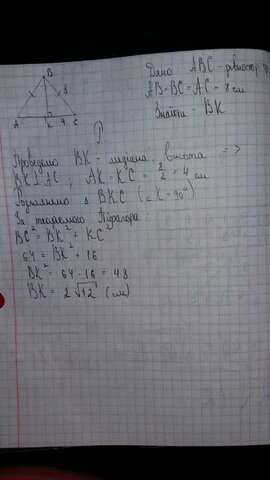 B
8
A K 4 C
Дано: ABC - рівностор.
AB=BC=AC=8 см
Знайти: BK
Проведемо BK - медіана, висота =>
BK⊥AC, AK=KC=8/2=4 см
Розглянемо Δ BKC (∠K=90°)
За теоремою Піфагора:
BC²=BK²+KC²
64=BK²+16
BK²=64-16=48
BK=2√12 (см)